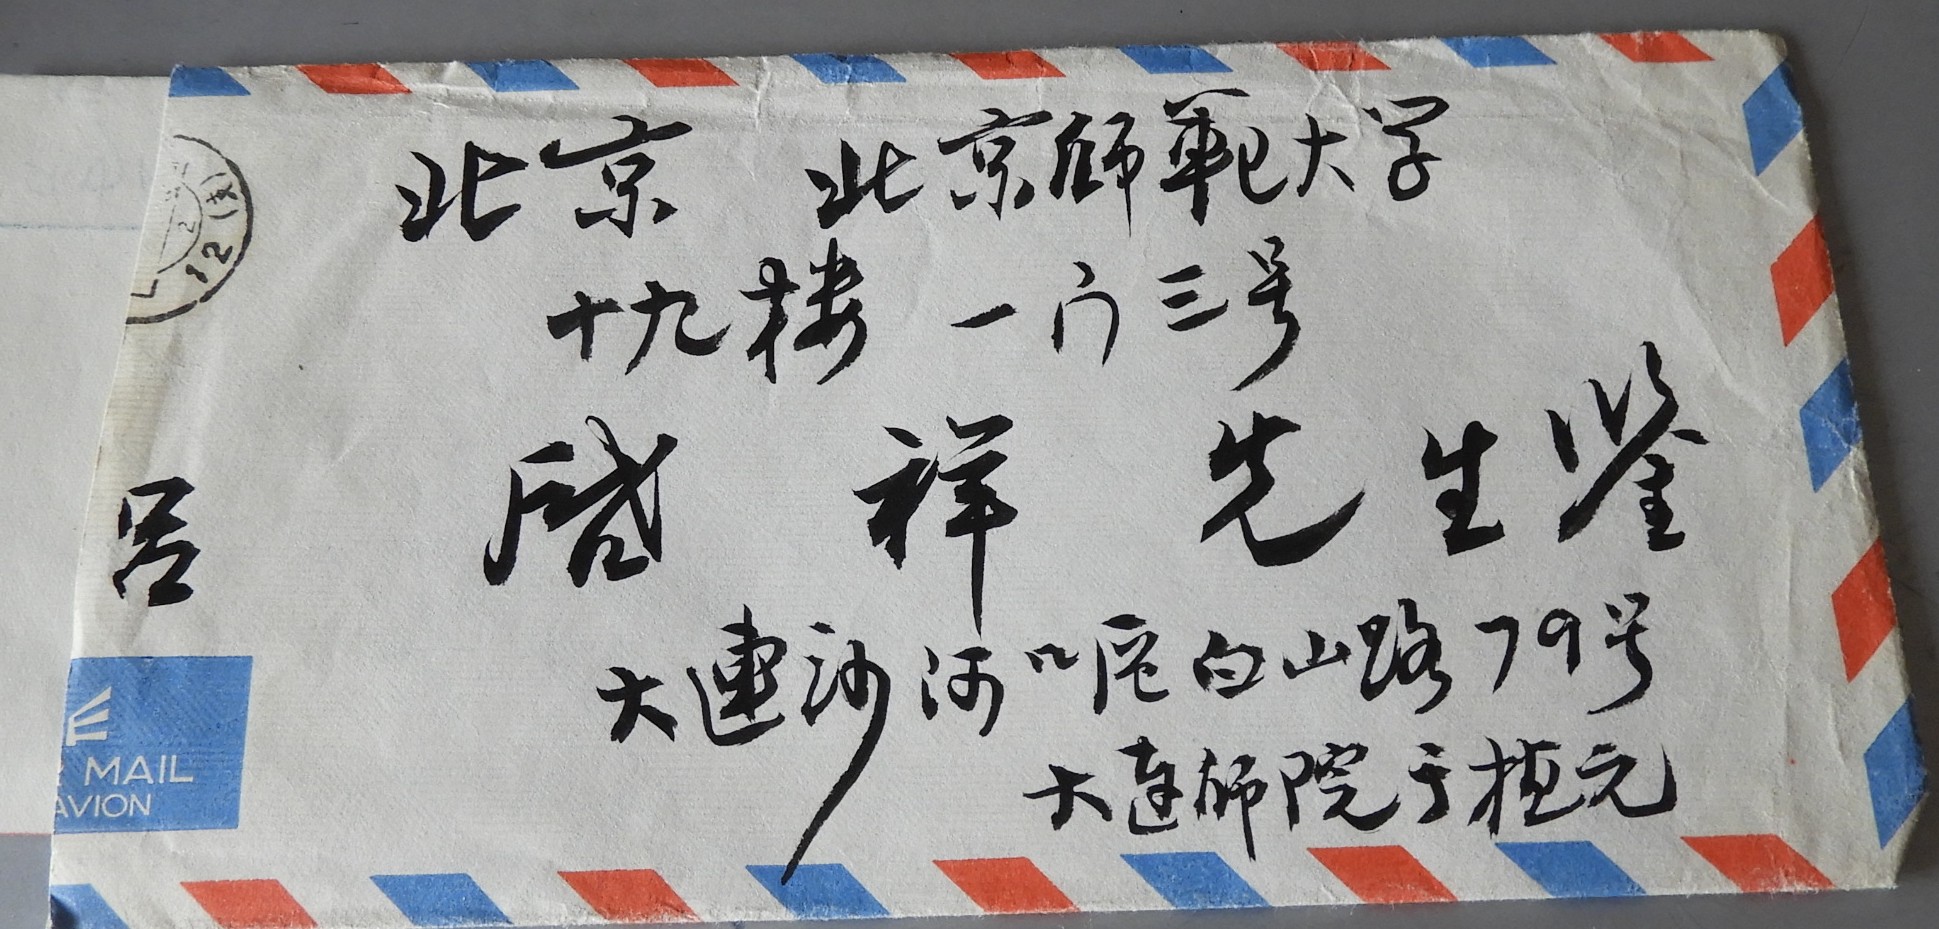 北京 北京師範大学
十九楼 一门三号
吕 启祥 先生鉴
大連沙河口区白山路79号
大连师院于植元
MAIL
AVION
12